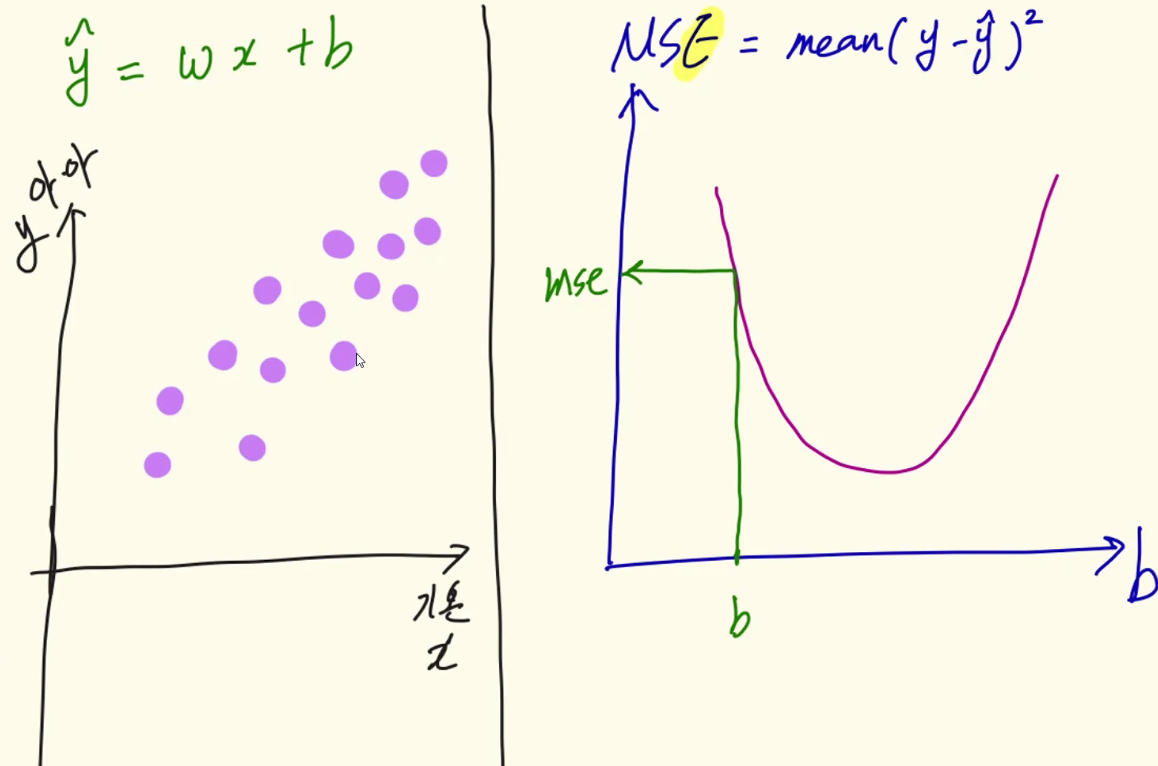 ŷ = wx + b
y
기온
x
MSE = mean(y - ŷ)²
mse
b
b